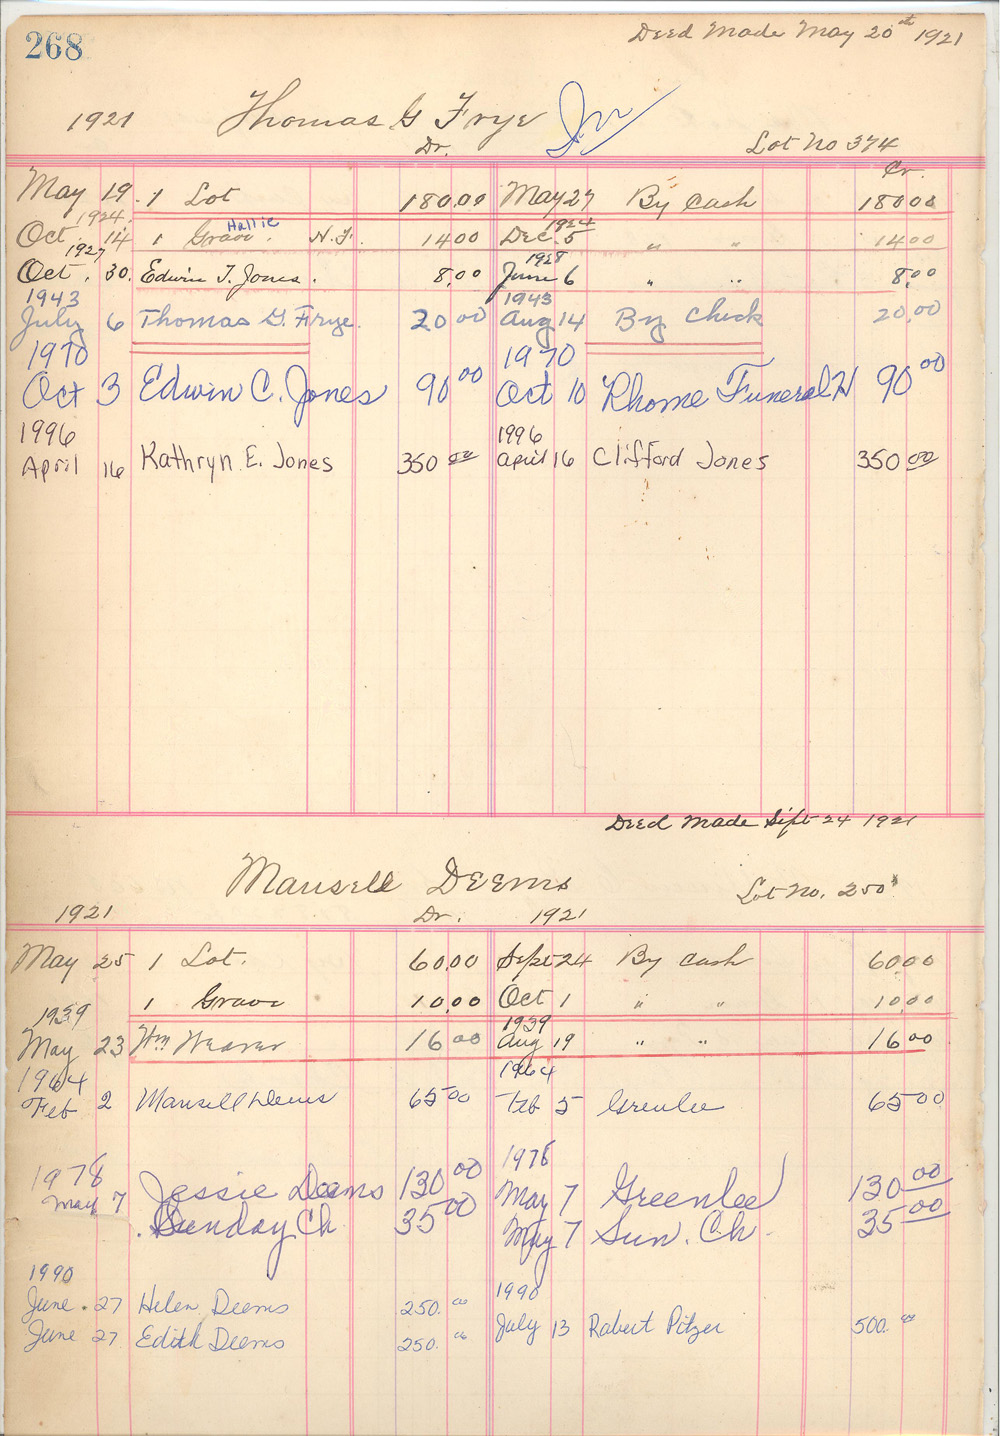 268
Deed Made May 20th 1921
1921 Thomas G Frye Jr
Dr. Lot No 374
Cr.
May 19. 1 Lot 180.00 May 27 By Cash 180.00
1924. 1924
Oct. 14 1 Grave. Hallie N.F. 14 00 Dec. 5 " " 14 00
1927 1928
Oct. 30. Edwin T. Jones. 8.00 June 6 " " 8.00
1943 1943
July 6 Thomas G. Frye. 20 00 Aug 14 By Check 20.00
1970 1970
Oct 3 Edwin C. Jones 90 00 Oct 10 Rhome Funeral H 90 00
1996 1996
April 16 Kathryn E. Jones 350 00 April 16 Clifford Jones 350 00
Deed Made Sept 24 1921
Mansell Deems
Lot No. 250
1921 Dr. 1921
May 25 1 Lot. 60.00 Sept 24 By Cash 60.00
1 Grave 10.00 Oct 1 " " 10.00
1939 1939
May 23 Wm Weaver 16 00 Aug 19 " " 16 00
1964 1964
Feb 2 Mansell Deems 65 00 Feb 5 Greenlee 65 00
1978 1978
May 7 Jessie Deems 130 00 May 7 Greenlee 130 00
Sunday Ch 35 00 May 7 Sun. Ch. 35 00
1990 1990
June. 27 Helen Deems 250. 00
June 27 Edith Deems 250. 00 July 13 Robert Pitzer 500. 00